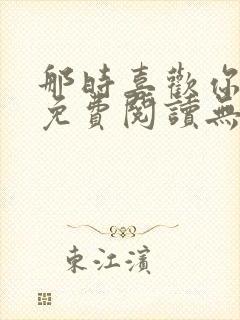 那時喜歡你
免費閱讀無
東江濱